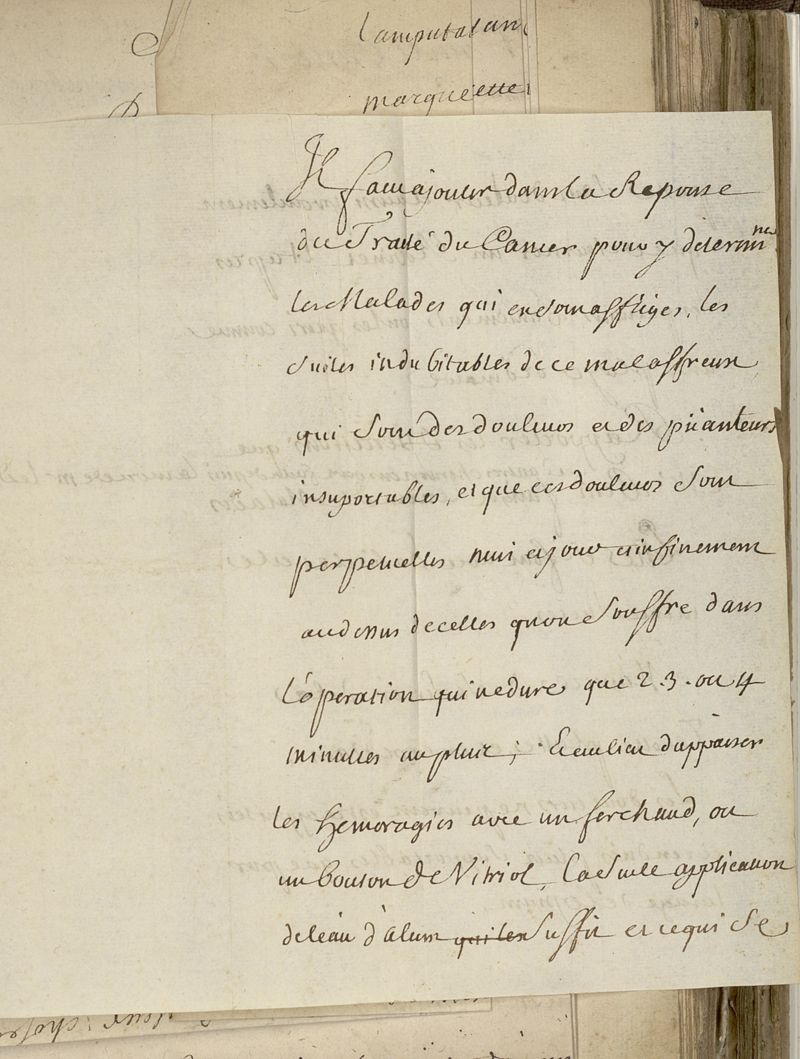 lamputation
marquette
Il faut ajouter dans la Reponse
du Traité du Cancer pour y determiner
les Malades qui en sont affligés, les
Suites indubitables de ce mal affreux
qui Sont des douleurs et des püanteurs
insuportables, et que ces douleurs Sont
perpetuelles nuit et jour et infinement
audessus de celles quon Souffre dans
L'óperation qui ne dure que 2. 3. ou 4
minuttes au plus; Et au lieu dappaiser
les hemoragies avec un fer chaud, ou
un bouton de Vitriol, La Seule application
de leau d'alum qui les Suffit et ce qui Se